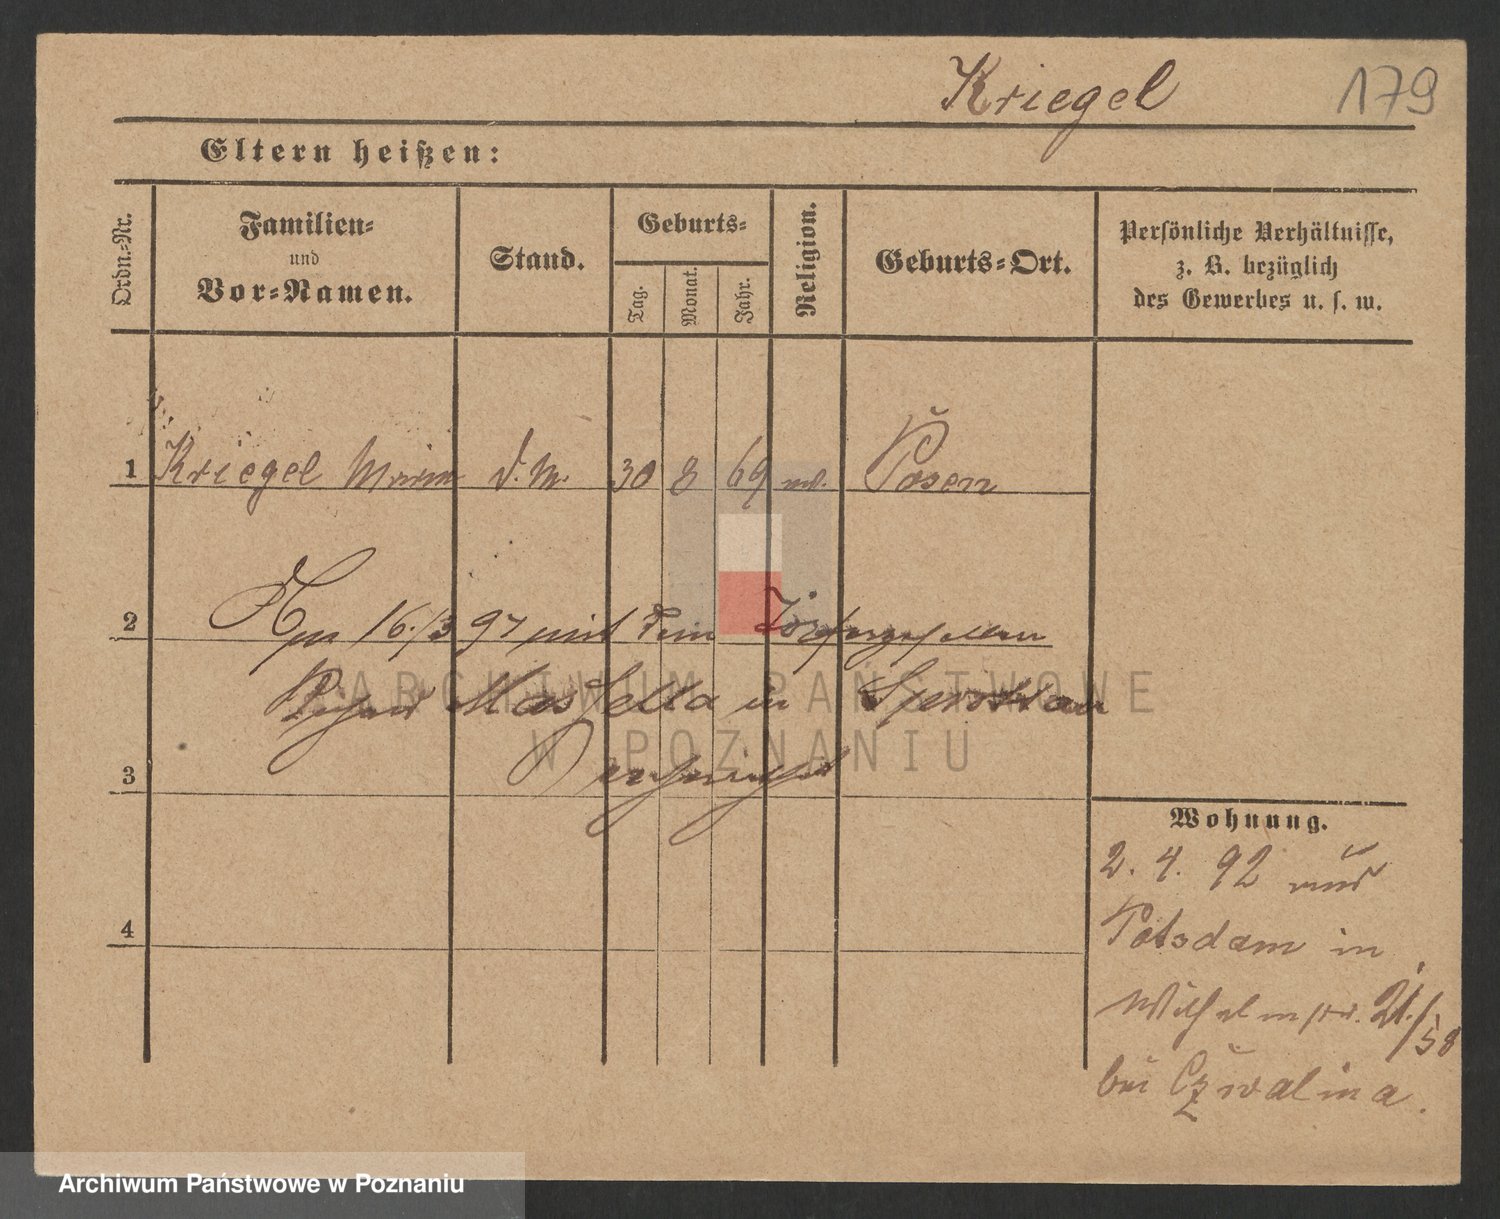 Kriegel 179
Eltern heißen:
Ordn.-Nr.
Familien-
und
Vor-Namen.
Stand.
Geburts-
Tag.
Monat.
Jahr.
Religion.
Geburts-Ort.
Persönliche Verhältnisse,
z. B. bezüglich
des Gewerbes u. s. w.
1 Kriegel Maria d. M. 30 8 69 Posen
2 Am 16./3 97 mit dem Töpfergesellen
in
3 verheirathet
ARCHIWUM PAŃSTWOWE
W POZNANIU
4
Wohnung.
2. 4. 92 aus
Potsdam in
Wilhelmstr. 21./58
bei Czwalina.
Archiwum Państwowe w Poznaniu